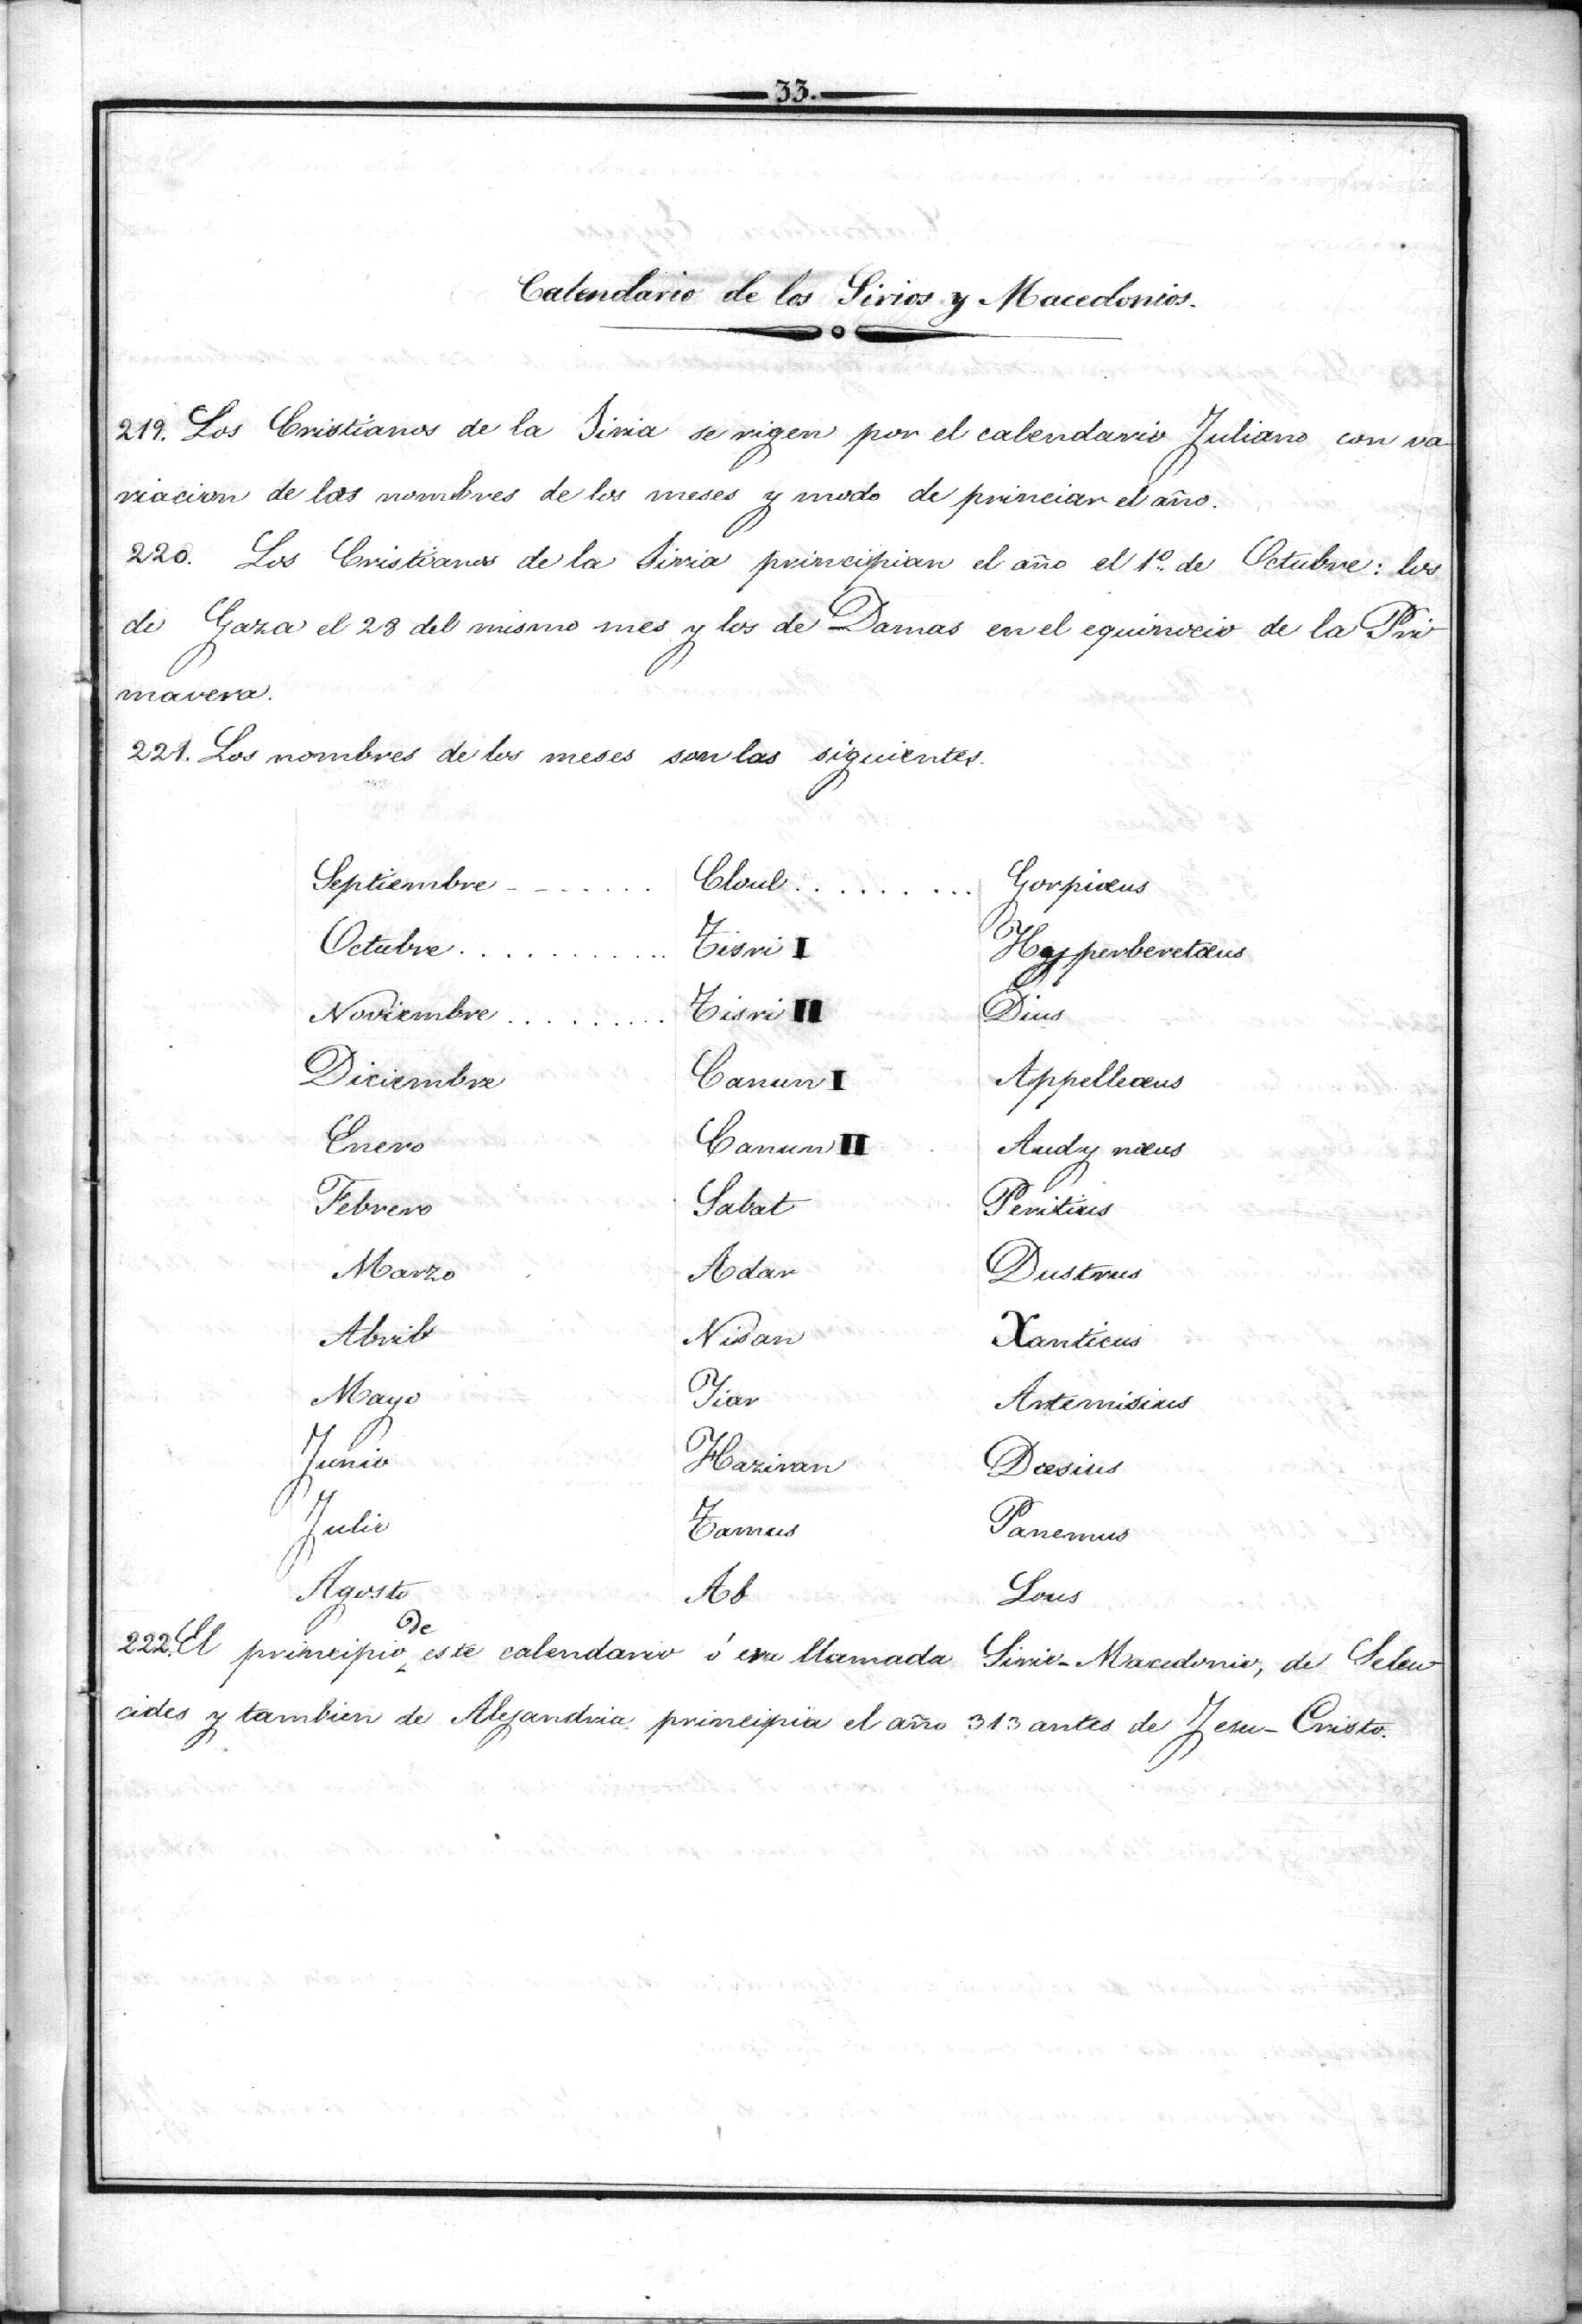 33.
Calendario de los Sirios y Macedonios.
219. Los Cristianos de la Siria se rigen por el calendario Juliano con va
riacion de los nombres de los meses y modo de princiar el año.
220. Los Cristianos de la Siria principian el año el 1º de Octubre: los
de Gaza el 28 del mismo mes y los de Damas en el equinocio de la Pri
mavera.
221. Los nombres de los meses son las siguientes.
Septiembre - - - . . . . Cloul . . . . . . . . . Gorpiæus
Octubre . . . . . . . . . . . Tisri I Hyperberetæus
Noviembre . . . . . . . . . Tisri II Dius
Diciembre Canun I Appellæus
Enero Canun II Audynæus
Febrero Sabat Peritius
Marzo Adar Dustrus
Abril Nisan Xanticus
Mayo Jiar Artemisius
Junio Haziran Dæsius
Julio Tamus Panemus
Agosto Ab Lous
222. El principio de este calendario ó era llamada Sirio-Macedonio, de Seleu
cides y tambien de Alejandria principia el año 313 antes de Jesu-Cristo.